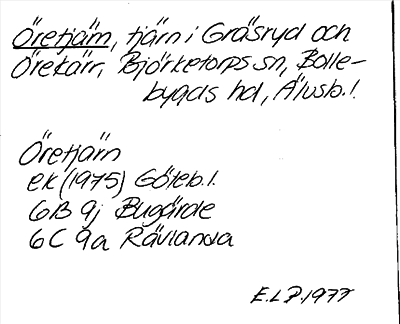 Öretjärn, tjärn i Gräsryd och
Örekärr, Björketorps sn, Bolle-
bygds hd, Älvsb. l.
Öretjärn
ek (1975) Göteb. l.
6B 9j Bugärde
6C 9a Rävlanda
E.L.P. 1977